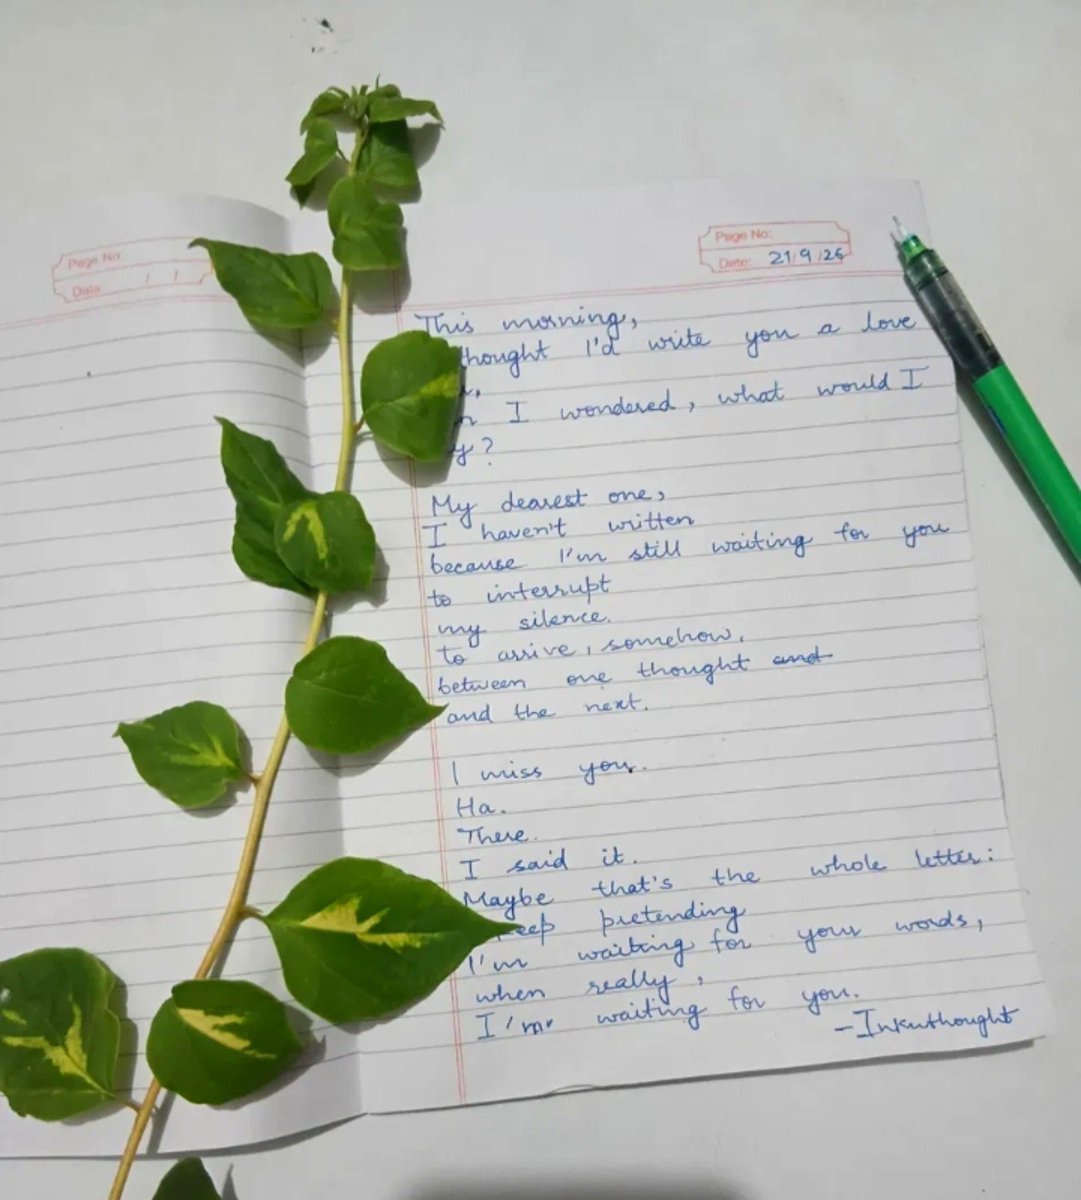 Page No:
Data / /
Page No:
Date: 21/9/26
This morning,
thought I'd write you a love
I wondered, what would I
y?
My dearest one,
I haven't written
because I'm still waiting for you
to interrupt
my silence.
to arrive, somehow,
between one thought and
and the next.
I miss you.
Ha.
There.
I said it.
Maybe that's the whole letter:
eep pretending
I'm waiting for your words,
when really,
I'm waiting for you.
-Inkuthought